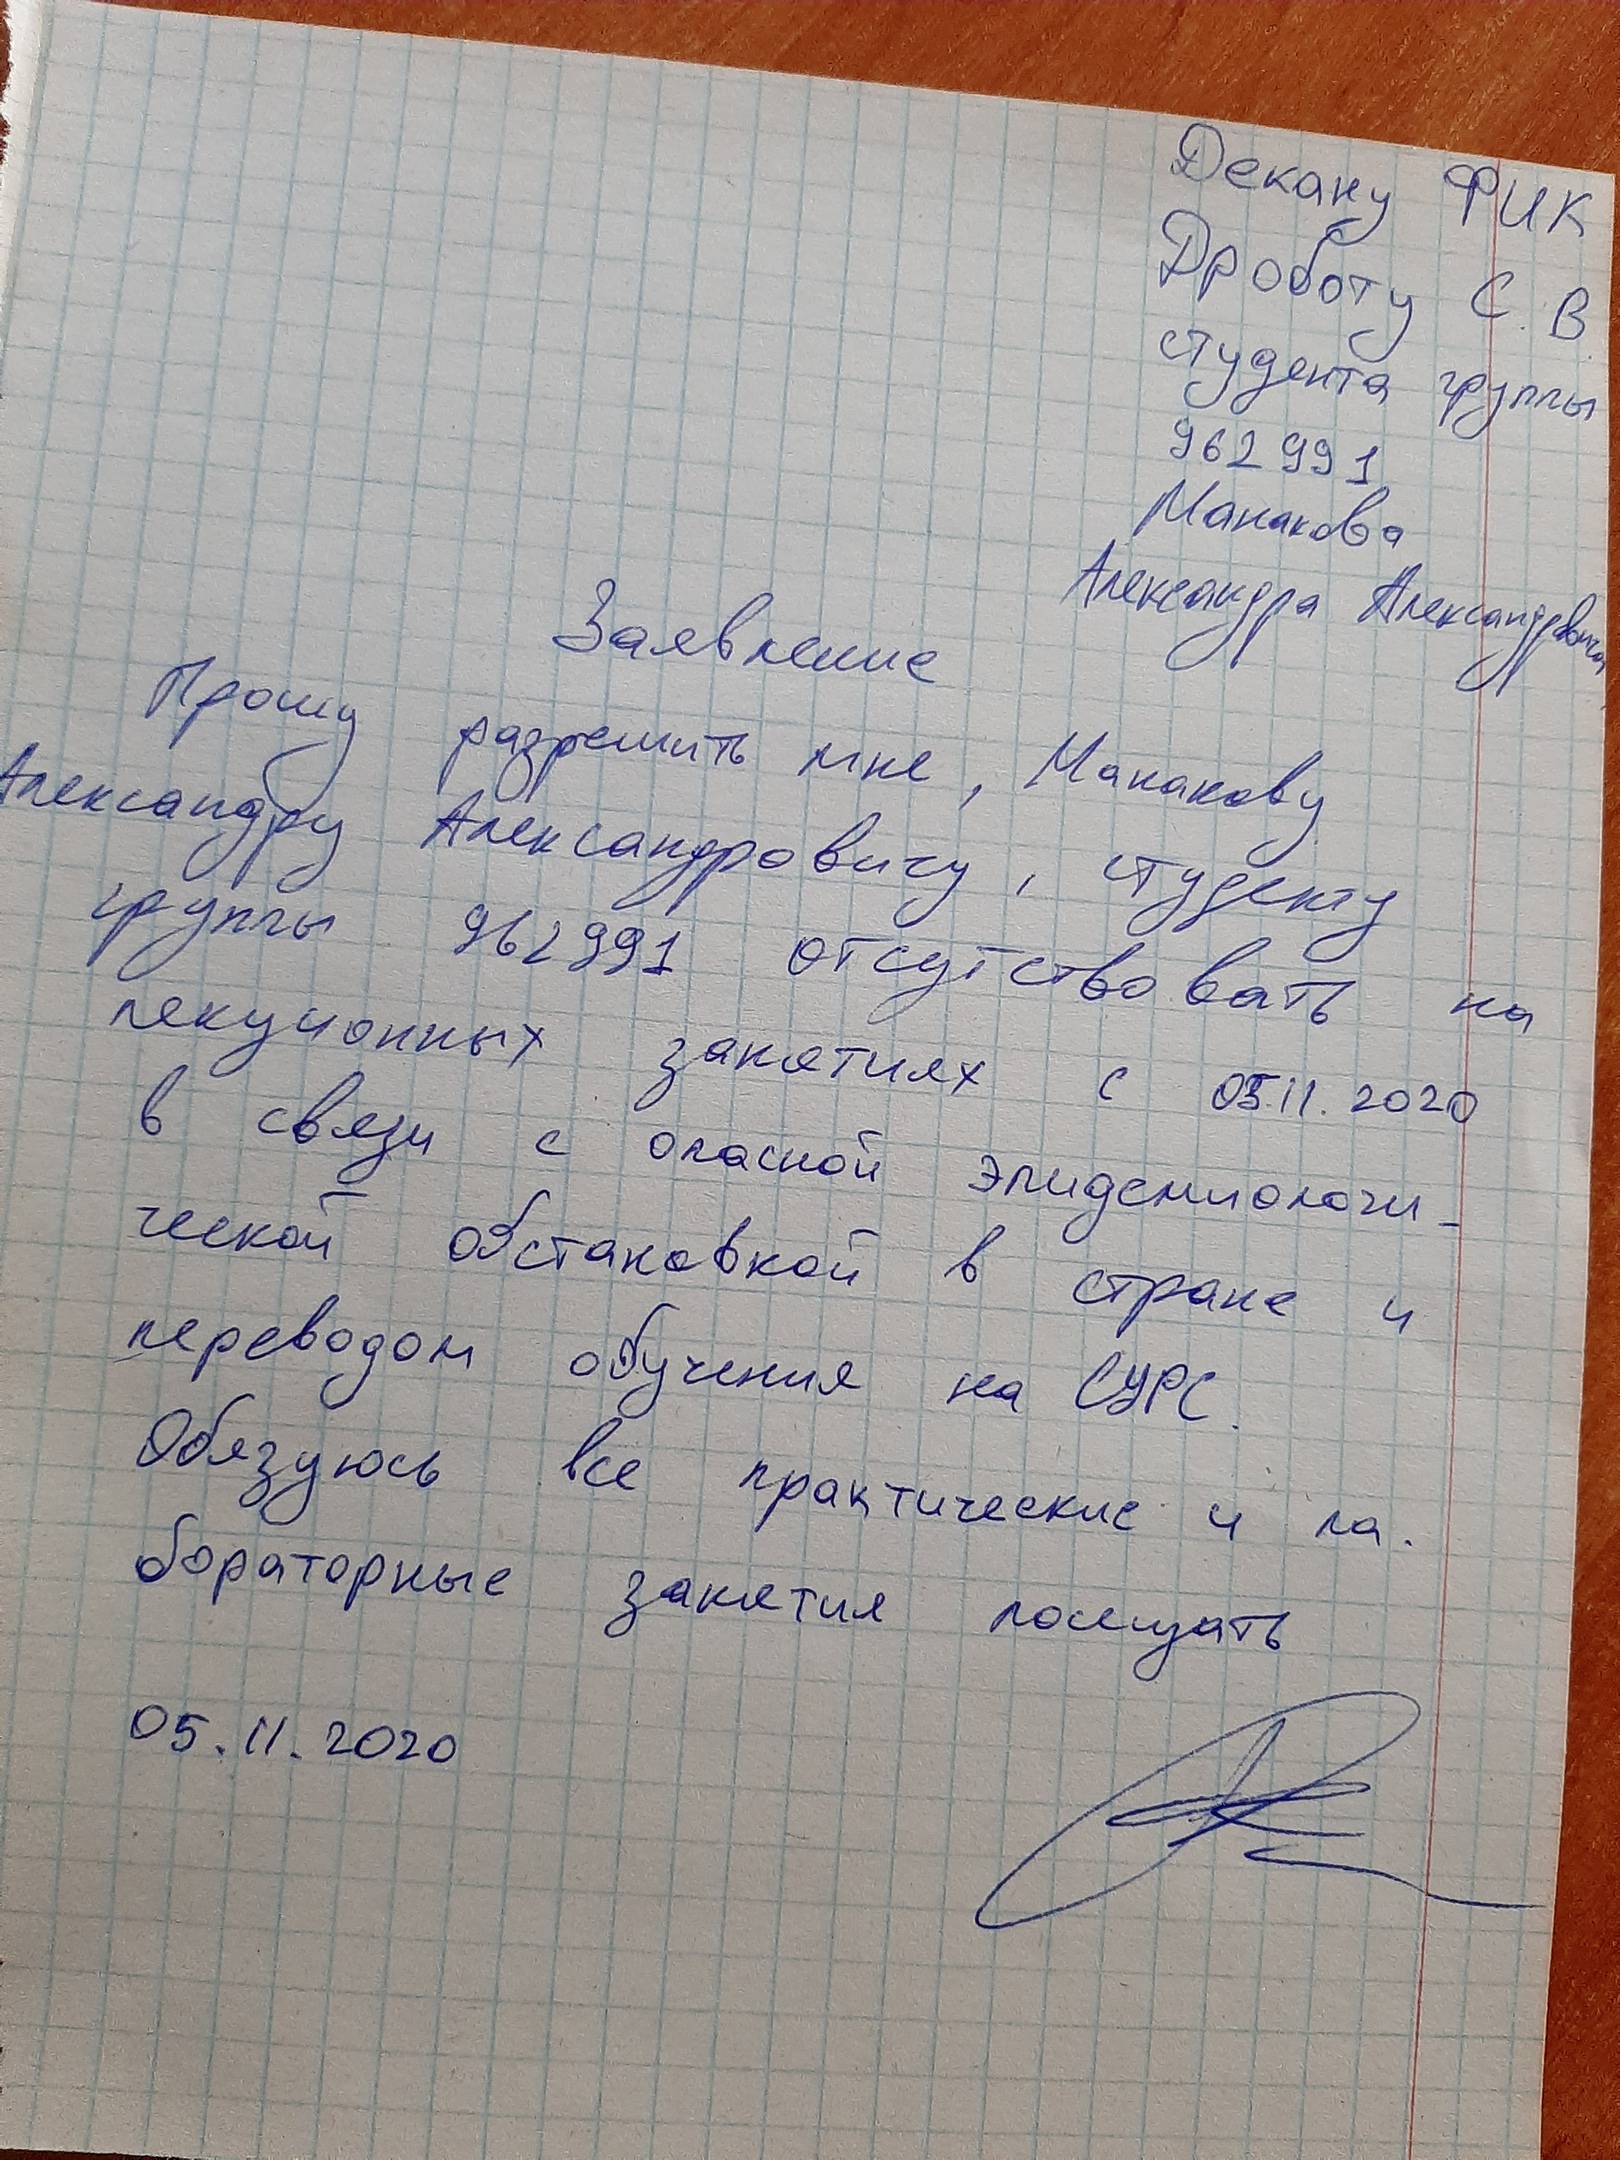 Декану ФИК
Дроботу С. В.
студента группы
962991
Манакова
Александра Александровича
Заявление
Прошу разрешить мне, Манакову
Александру Александровичу, студенту
группы 962991 отсутствовать на
лекционных занятиях с 05.11.2020
в связи с опасной эпидемиологи-
ческой обстановкой в стране и
переводом обучения на СУРС.
Обязуюсь все практические и ла-
бораторные занятия посещать
05.11.2020